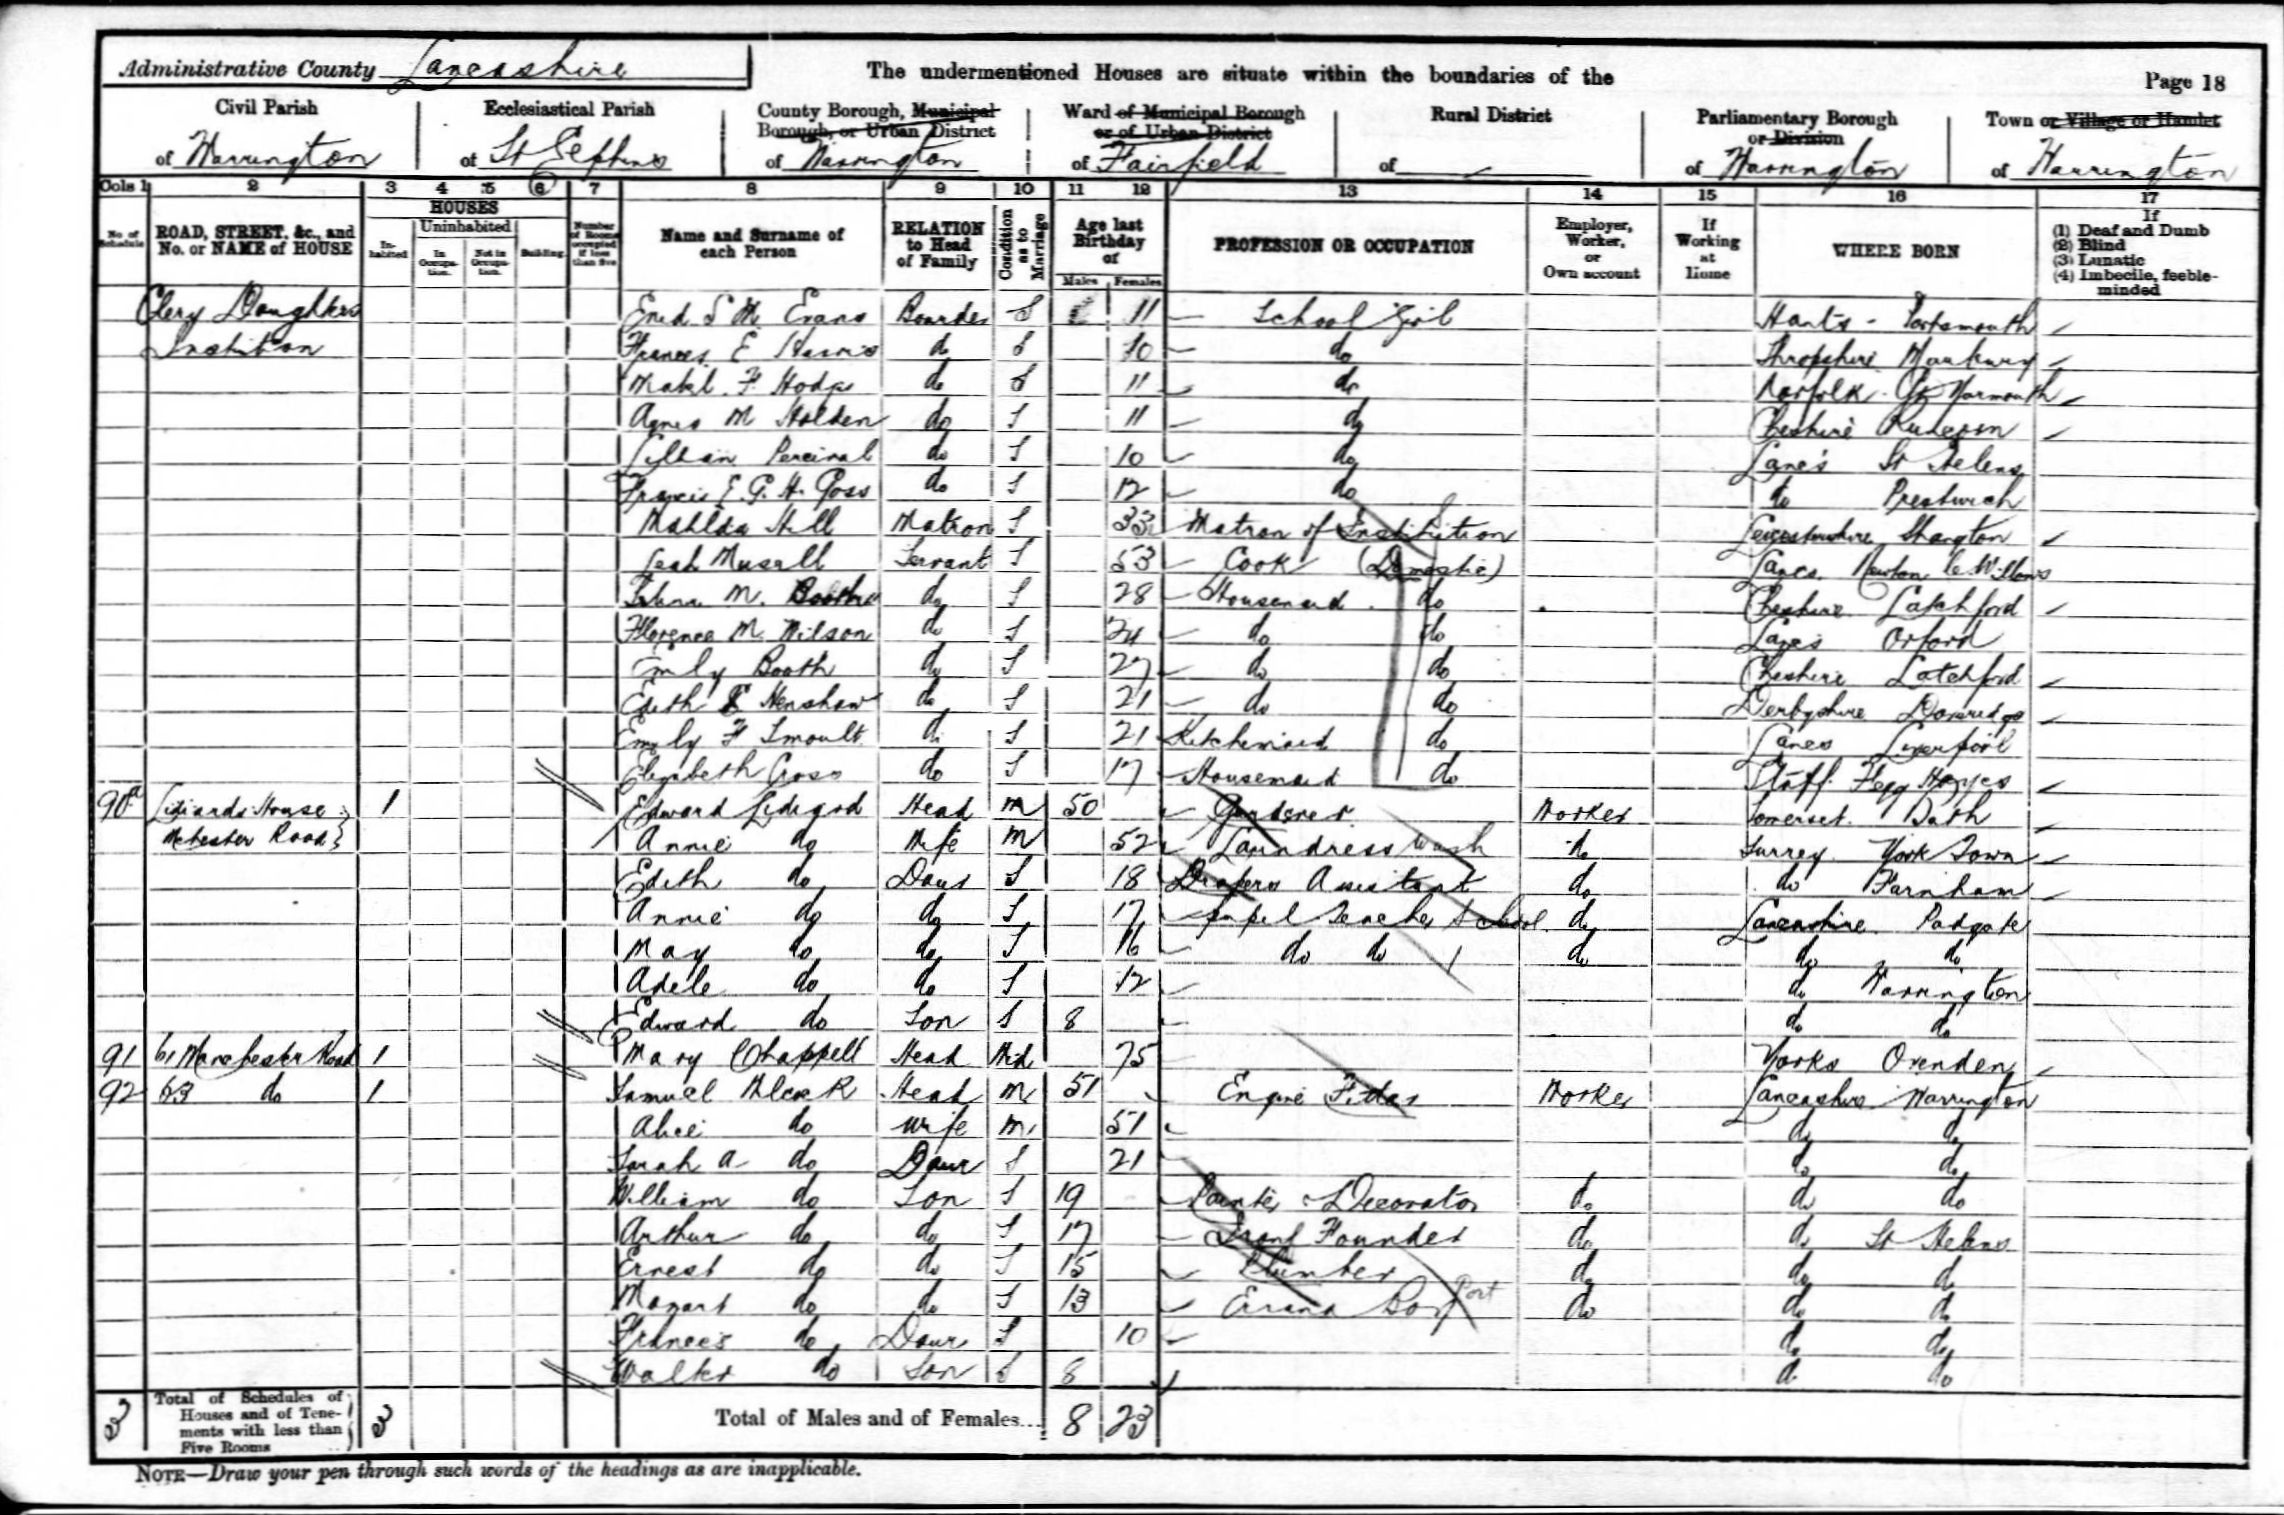 Administrative County Lancashire
The undermentioned Houses are situate within the boundaries of the
Page 18
Civil Parish
of Warrington
Ecclesiastical Parish
of St
County Borough, Municipal Borough, or Urban District
of Warrington
Ward of Municipal Borough or of Urban District
of Fairfield
Rural District
of —
Parliamentary Borough or Division
of Warrington
Town or Village or Hamlet
of Warrington
Cols 1 2 3 4 5 6 7 8 9 10 11 12 13 14 15 16 17
No of Schedule
ROAD, STREET, &c., and No. or NAME of HOUSE
HOUSES
In-habited
Uninhabited
In Occupa-tion.
Not in Occupa-tion.
Building.
Number of Rooms occupied if less than five
Name and Surname of each Person
RELATION to Head of Family
Condition as to Marriage
Age last Birthday of
Males Females
PROFESSION OR OCCUPATION
Employer, Worker, or Own account
If Working at Home
WHERE BORN
If
(1) Deaf and Dumb
(2) Blind
(3) Lunatic
(4) Imbecile, feeble-minded
Clery Daughters Enid S M Evans Boarder S 11 School Girl Hants - Portsmouth
Institution Frances E Harris do S 10 do Shropshire
Mabel F Hodge do S 11 do Norfolk Gt Yarmouth
Agnes M Holden do S 11 do Cheshire Runcorn
Lillian Percival do S 10 do Lancs St Helens
Francis E. G. H. Goss do S 12 do do Prestwich
Matilda Hill Matron S 33 Matron of Institution Leicestershire Shangton
Leah Servant S 53 Cook (Domestic) Lancs. Newton le Willows
M. Booth do S 28 Housemaid do Cheshire Latchford
Florence M. Wilson do S 24 do do Lancs Orford
Emily Booth do S 27 do do Cheshire Latchford
Edith E Henshaw do S 21 do do Derbyshire Doveridge
Emily F Smoult do S 21 Kitchenmaid do Lancs Liverpool
Elizabeth Cross do S 17 Housemaid do Staff. Fegg Hayes
90a House 1 Edward Head M 50 Gardener Worker Somerset. Bath
Mchester Road Annie do Wife M 52 Laundress Wash do Surrey York Town
Edith do Daur S 18 Drapers Assistant do do Farnham
Annie do do S 17 pupil Teacher School do Lancashire Padgate
May do do S 16 do do do do do
Adele do do S 12 do Warrington
Edward do Son S 8 do do
91 61 Manchester Road 1 Mary Chappell Head Wid 75 Yorks Ovenden
92 63 do 1 Samuel Head M 51 Engine Fitter Worker Lancashire Warrington
Alice do Wife M 51 do do
Sarah A do Daur S 21 do do
William do Son S 19 Painter & Decorator do do do
Arthur do do S 17 Iron Founder do do St Helens
Ernest do do S 15 Plumber do do do
Mozart do do S 13 Errand Boy Port do do do
Frances do Daur S 10 do do
Walter do Son S 8 do do
3 Total of Schedules of Houses and of Tene-ments with less than Five Rooms 3 Total of Males and of Females... 8 23
NOTE—Draw your pen through such words of the headings as are inapplicable.